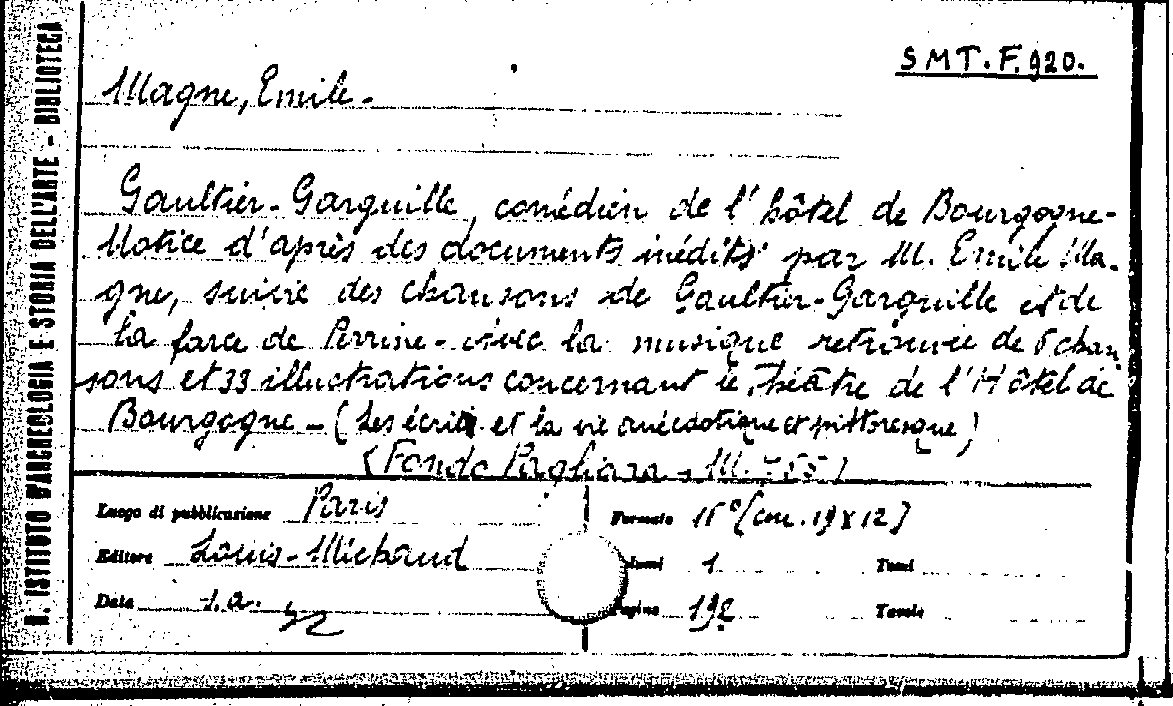 R. ISTITUTO D'ARCHEOLOGIA E STORIA DELL'ARTE - BIBLIOTECA
SMT. F. 920.
Magne, Emile.
Gaultier-Garguille, comédien de l'hôtel de Bourgogne-
Notice d'après des documents inédits par M. Emile Ma-
gne, suivie des chansons de Gaultier-Garguille et de
la farce de Perrine - avec la musique retrouvée de 5 chan
sons et 33 illustrations concernant le théâtre de l'Hôtel de
Bourgogne - (Les écrits et la vie anécdotique et pittoresque)
(Fondo Pagliara - M. 755)
Luogo di pubblicazione Paris
Formato 16° (cm. 19 x 12)
Editore Louis-Michaud
Volumi 1
Tomi
Data s.a.
Pagine 192
Tavole